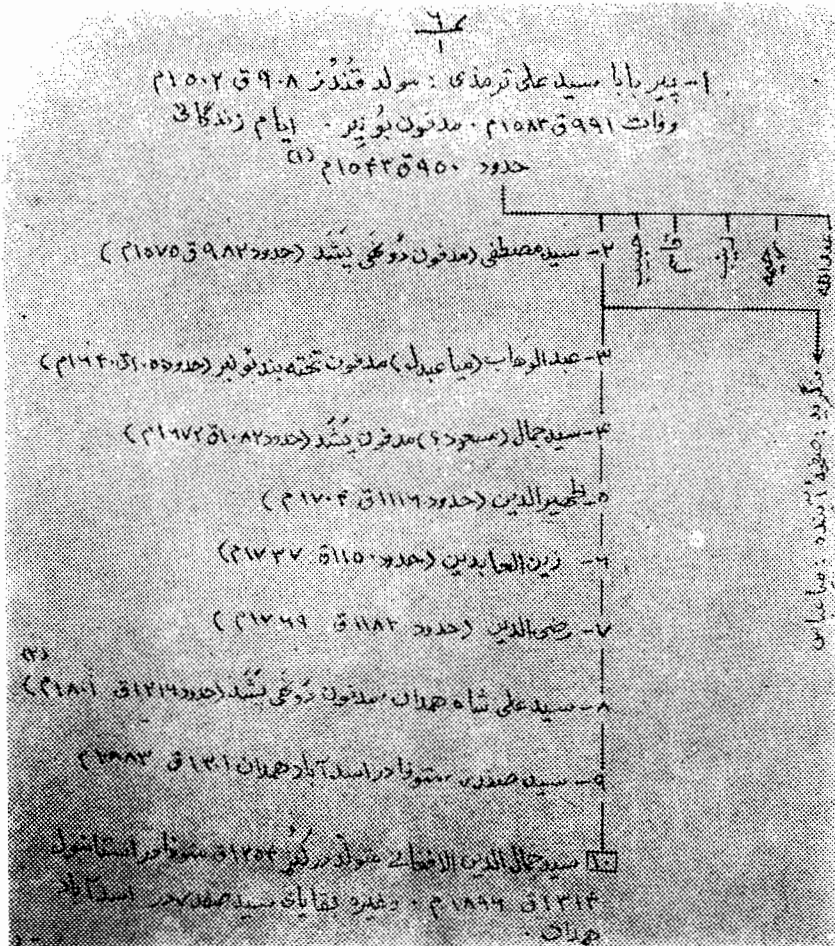 ۶
۱
۱- پیر بابا سید علی ترمذی : مولد قُندُز ۹۰۸ ق ۱۵۰۲م
وفات ۹۹۱ ق ۱۵۸۳م . مدفون بُونیر . ایام زندگانی
حدود ۹۵۰ ق ۱۵۴۳م (۱)
عبدالله
۲- سید مصطفی (مدفون دُوغی پَشَد (حدود ۹۸۲ ق ۱۵۷۵م)
۳- عبدالوهاب (میا عبدل) مدفون تخته بند بُونیر (حدود ۱۰۵۰ق ۱۶۴۰م)
۴- سید جمال (مسعود ؟) مدفون پَشَد (حدود ۱۰۸۲ق ۱۶۷۲م)
۵- ظهیرالدین (حدود ۱۱۱۶ ق ۱۷۰۴م)
۶- زین العابدین (حدود ۱۱۵۰ق ۱۷۳۷م)
۷- رضی الدین (حدود ۱۱۸۲ ق ۱۷۶۹م)
(۲)
۸- سید علی شاه همدان مدفون دُوغی پَشَد (حدود ۱۲۱۶ق ۱۸۰۱م)
۹- سید صفدر متوفا در اسدآباد همدان ۱۳۰۱ ق ۱۸۸۳م
۱۰ سید جمال الدین الافغانی متولد در کُنَر ۱۲۵۴ق متوفا در استانبول
۱۳۱۴ق ۱۸۹۶م . وغیره بقایای سید صفدر در اسدآباد
همدان .
بنگرید : صفحهٔ آینده : میا عباس